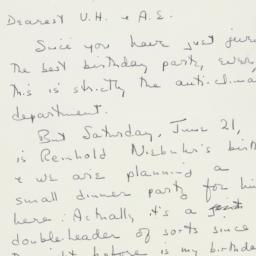 Dearest U.H. & A.E.
Since you have just
the best birthday party, ever,
this is strictly the anti-clima
department.
But Saturday, June 21,
is Reinhold Niebuhr's birth
& we are planning a
small dinner party for hi
here. Actually it's a
double-header of sorts since
before is my birthda